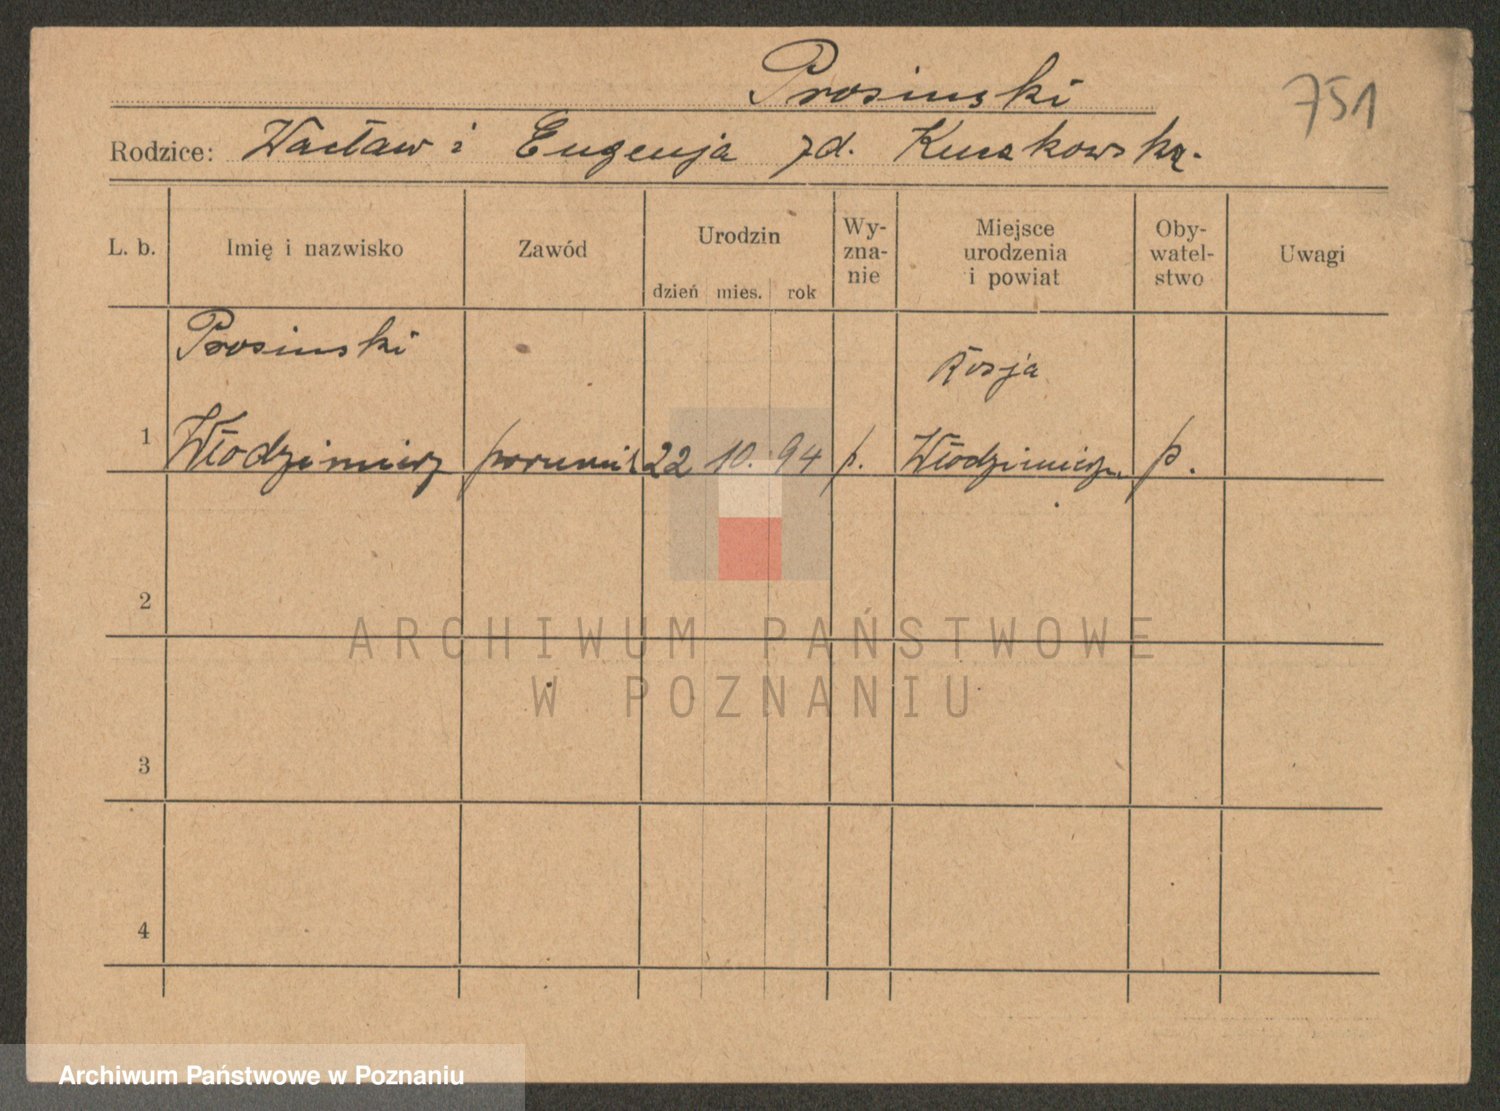 Prosinski
751
Rodzice: Wacław i Eugenja zd. Kuczkowska.
L. b. Imię i nazwisko Zawód Urodzin dzień mies. rok Wy-zna-nie Miejsce urodzenia i powiat Oby-watel-stwo Uwagi
Prosinski Rosja
1 Włodzimierz 22 10. 94 p. Włodzimierz p.
2
ARCHIWUM PAŃSTWOWE
W POZNANIU
3
4
Archiwum Państwowe w Poznaniu